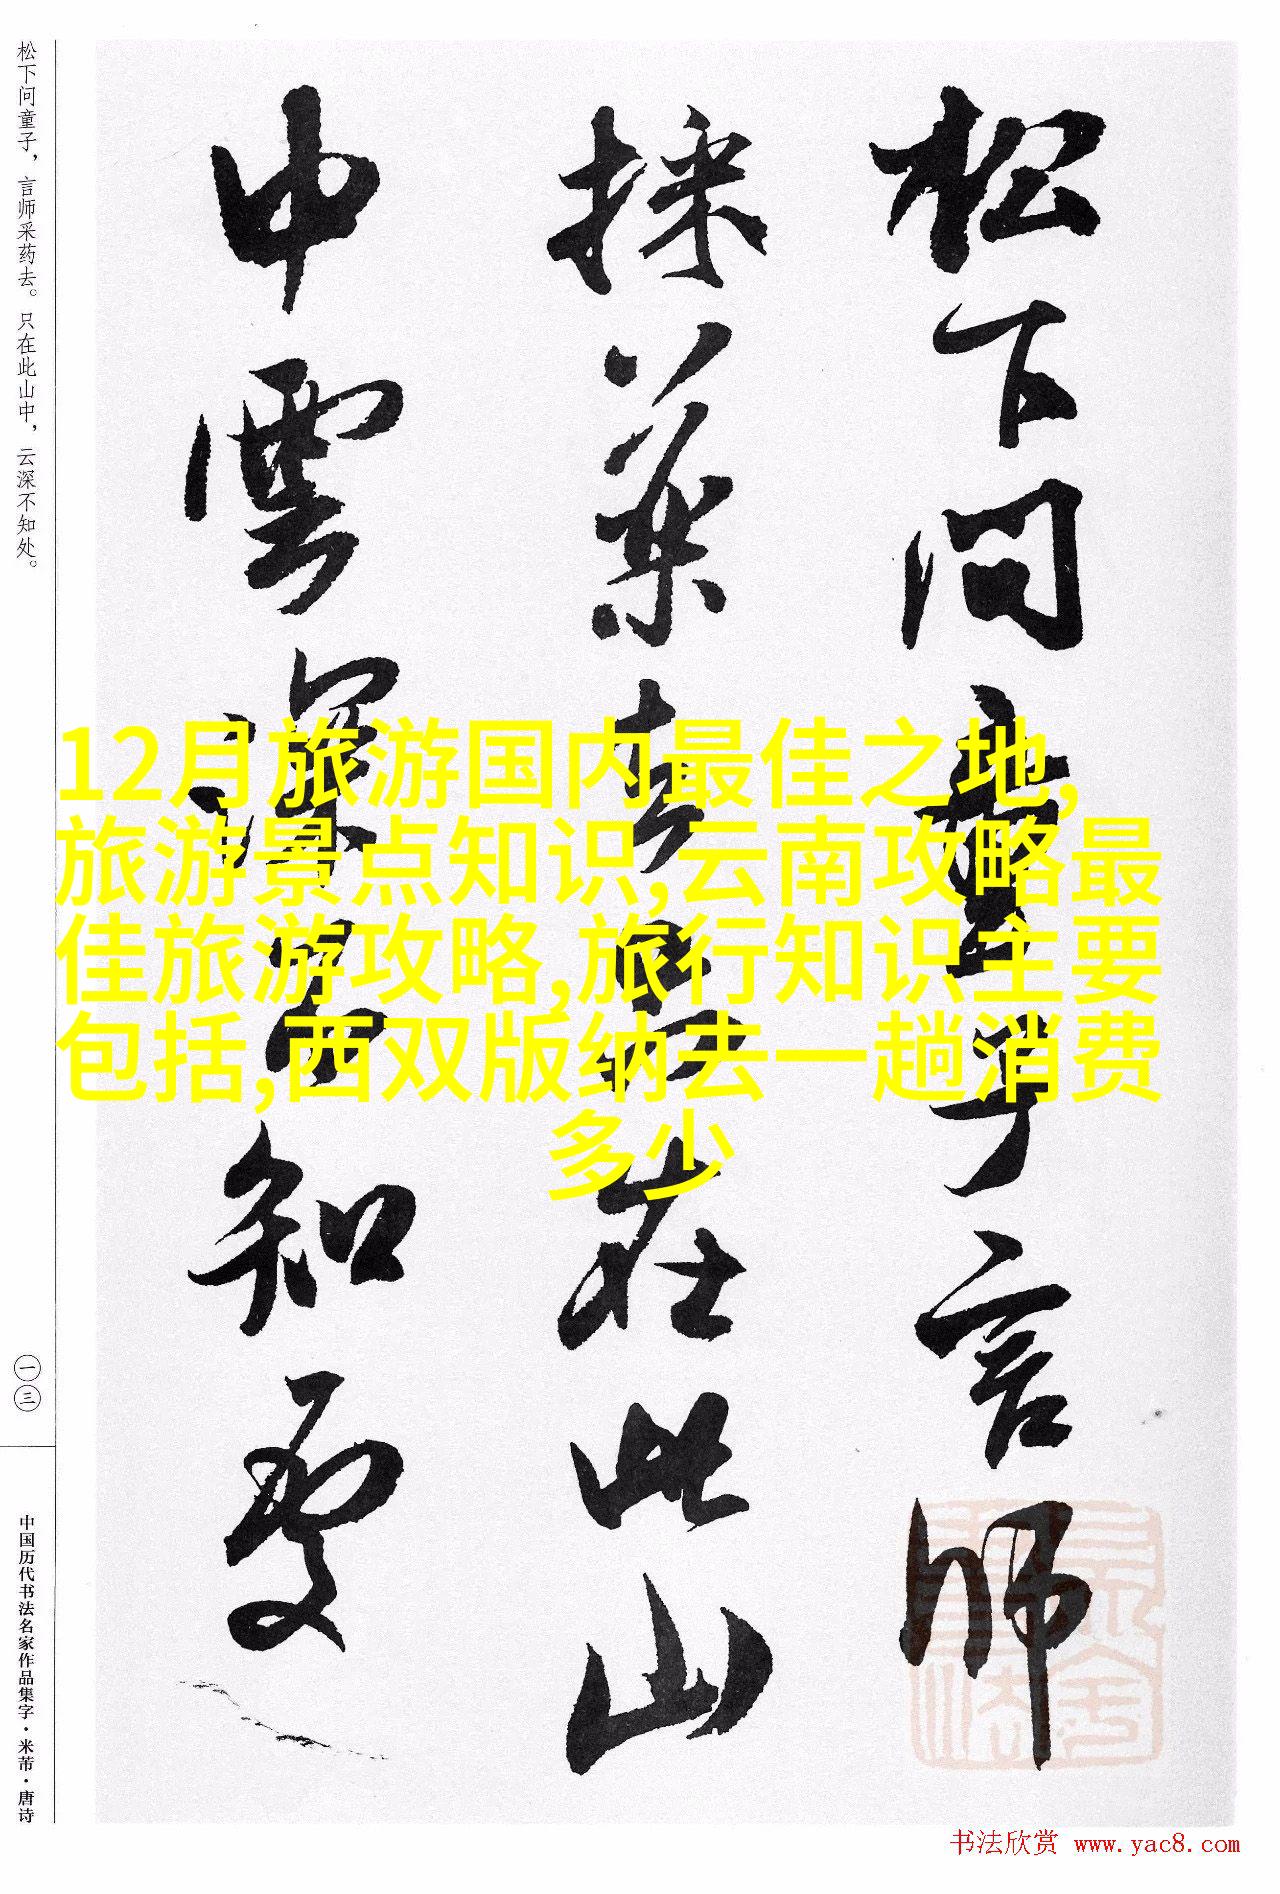 松下问童子，言师采药去。只在此山中，云深不知处。
一三
中国历代书法名家作品集字·米芾·唐诗
松下问童子言师
採药去只在此山
中雲深不知处
12月旅游国内最佳之地,
旅游景点知识,云南攻略最
佳旅游攻略,旅行知识主要
包括,西双版纳去一趟消费
多少
书法欣赏 www.yac8.com